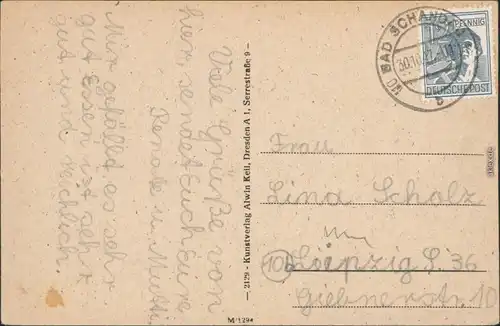 Viele Grüße von
hier, sendet Euch Eure
Renate u. Mutti
Mir gefällt es sehr
gut Essen ist sehr
gut und reichlich
— 2129 - Kunstverlag Alwin Keil, Dresden A 1, Serrestraße 9 —
M 1294
BAD SCHANDAU
b
PFENNIG
DEUTSCHE POST
Frau
Lina Scholz
in
(10b) Leipzig S. 36
Giebnerstr. 10